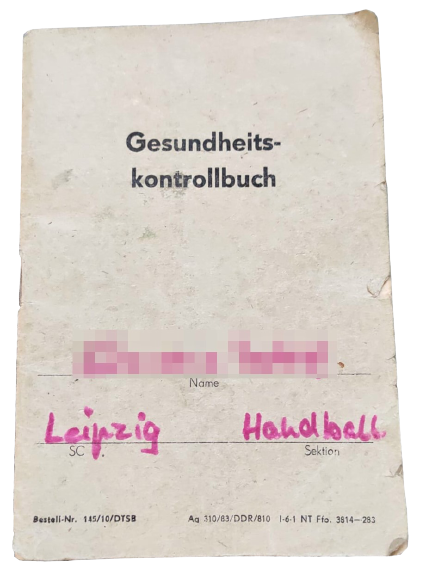 Gesundheits-
kontrollbuch
Name
Leipzig Handball
SC Sektion
Bestell-Nr. 145/10/DTSB Ag 310/83/DDR/810 I-6-1 NT Ffo. 3614-283